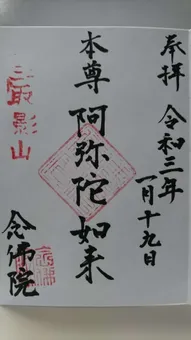 奉拝
令和三年
一月十九日
本尊
阿弥陀如来
最影山
念佛院